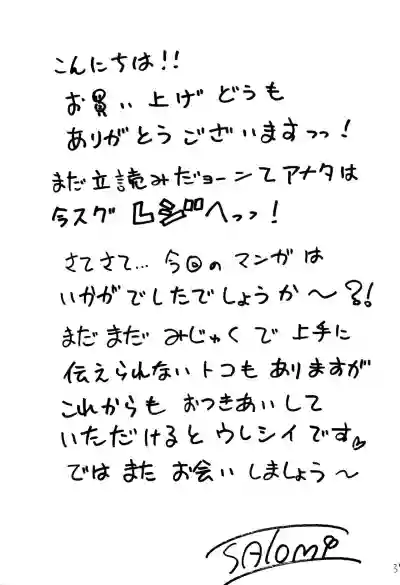 こんにちは!!
お買い上げどうも
ありがとうございますっっ!
まだ立読みだョーンてアナタは
今スグ レジへっっ!
さてさて… 今回のマンガは
いかがでしたでしょうか〜?!
まだまだ みじゅくで 上手に
伝えられないトコも ありますが
これからも おつきあいして
いただけると ウレシイです♡
では また お会いしましょう〜
SALOMi